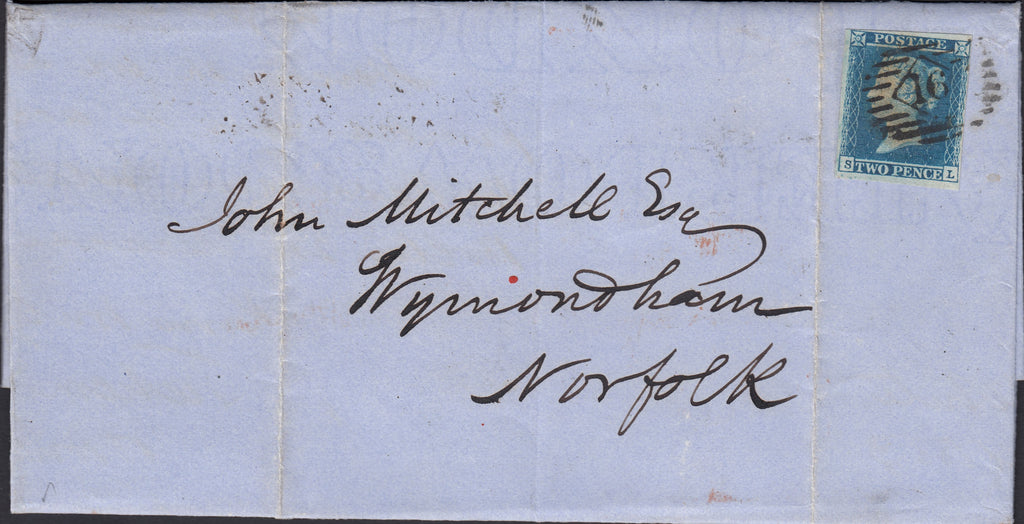 POSTAGE
16
S TWO PENCE L
John Mitchell Esq
Wymondham
Norfolk